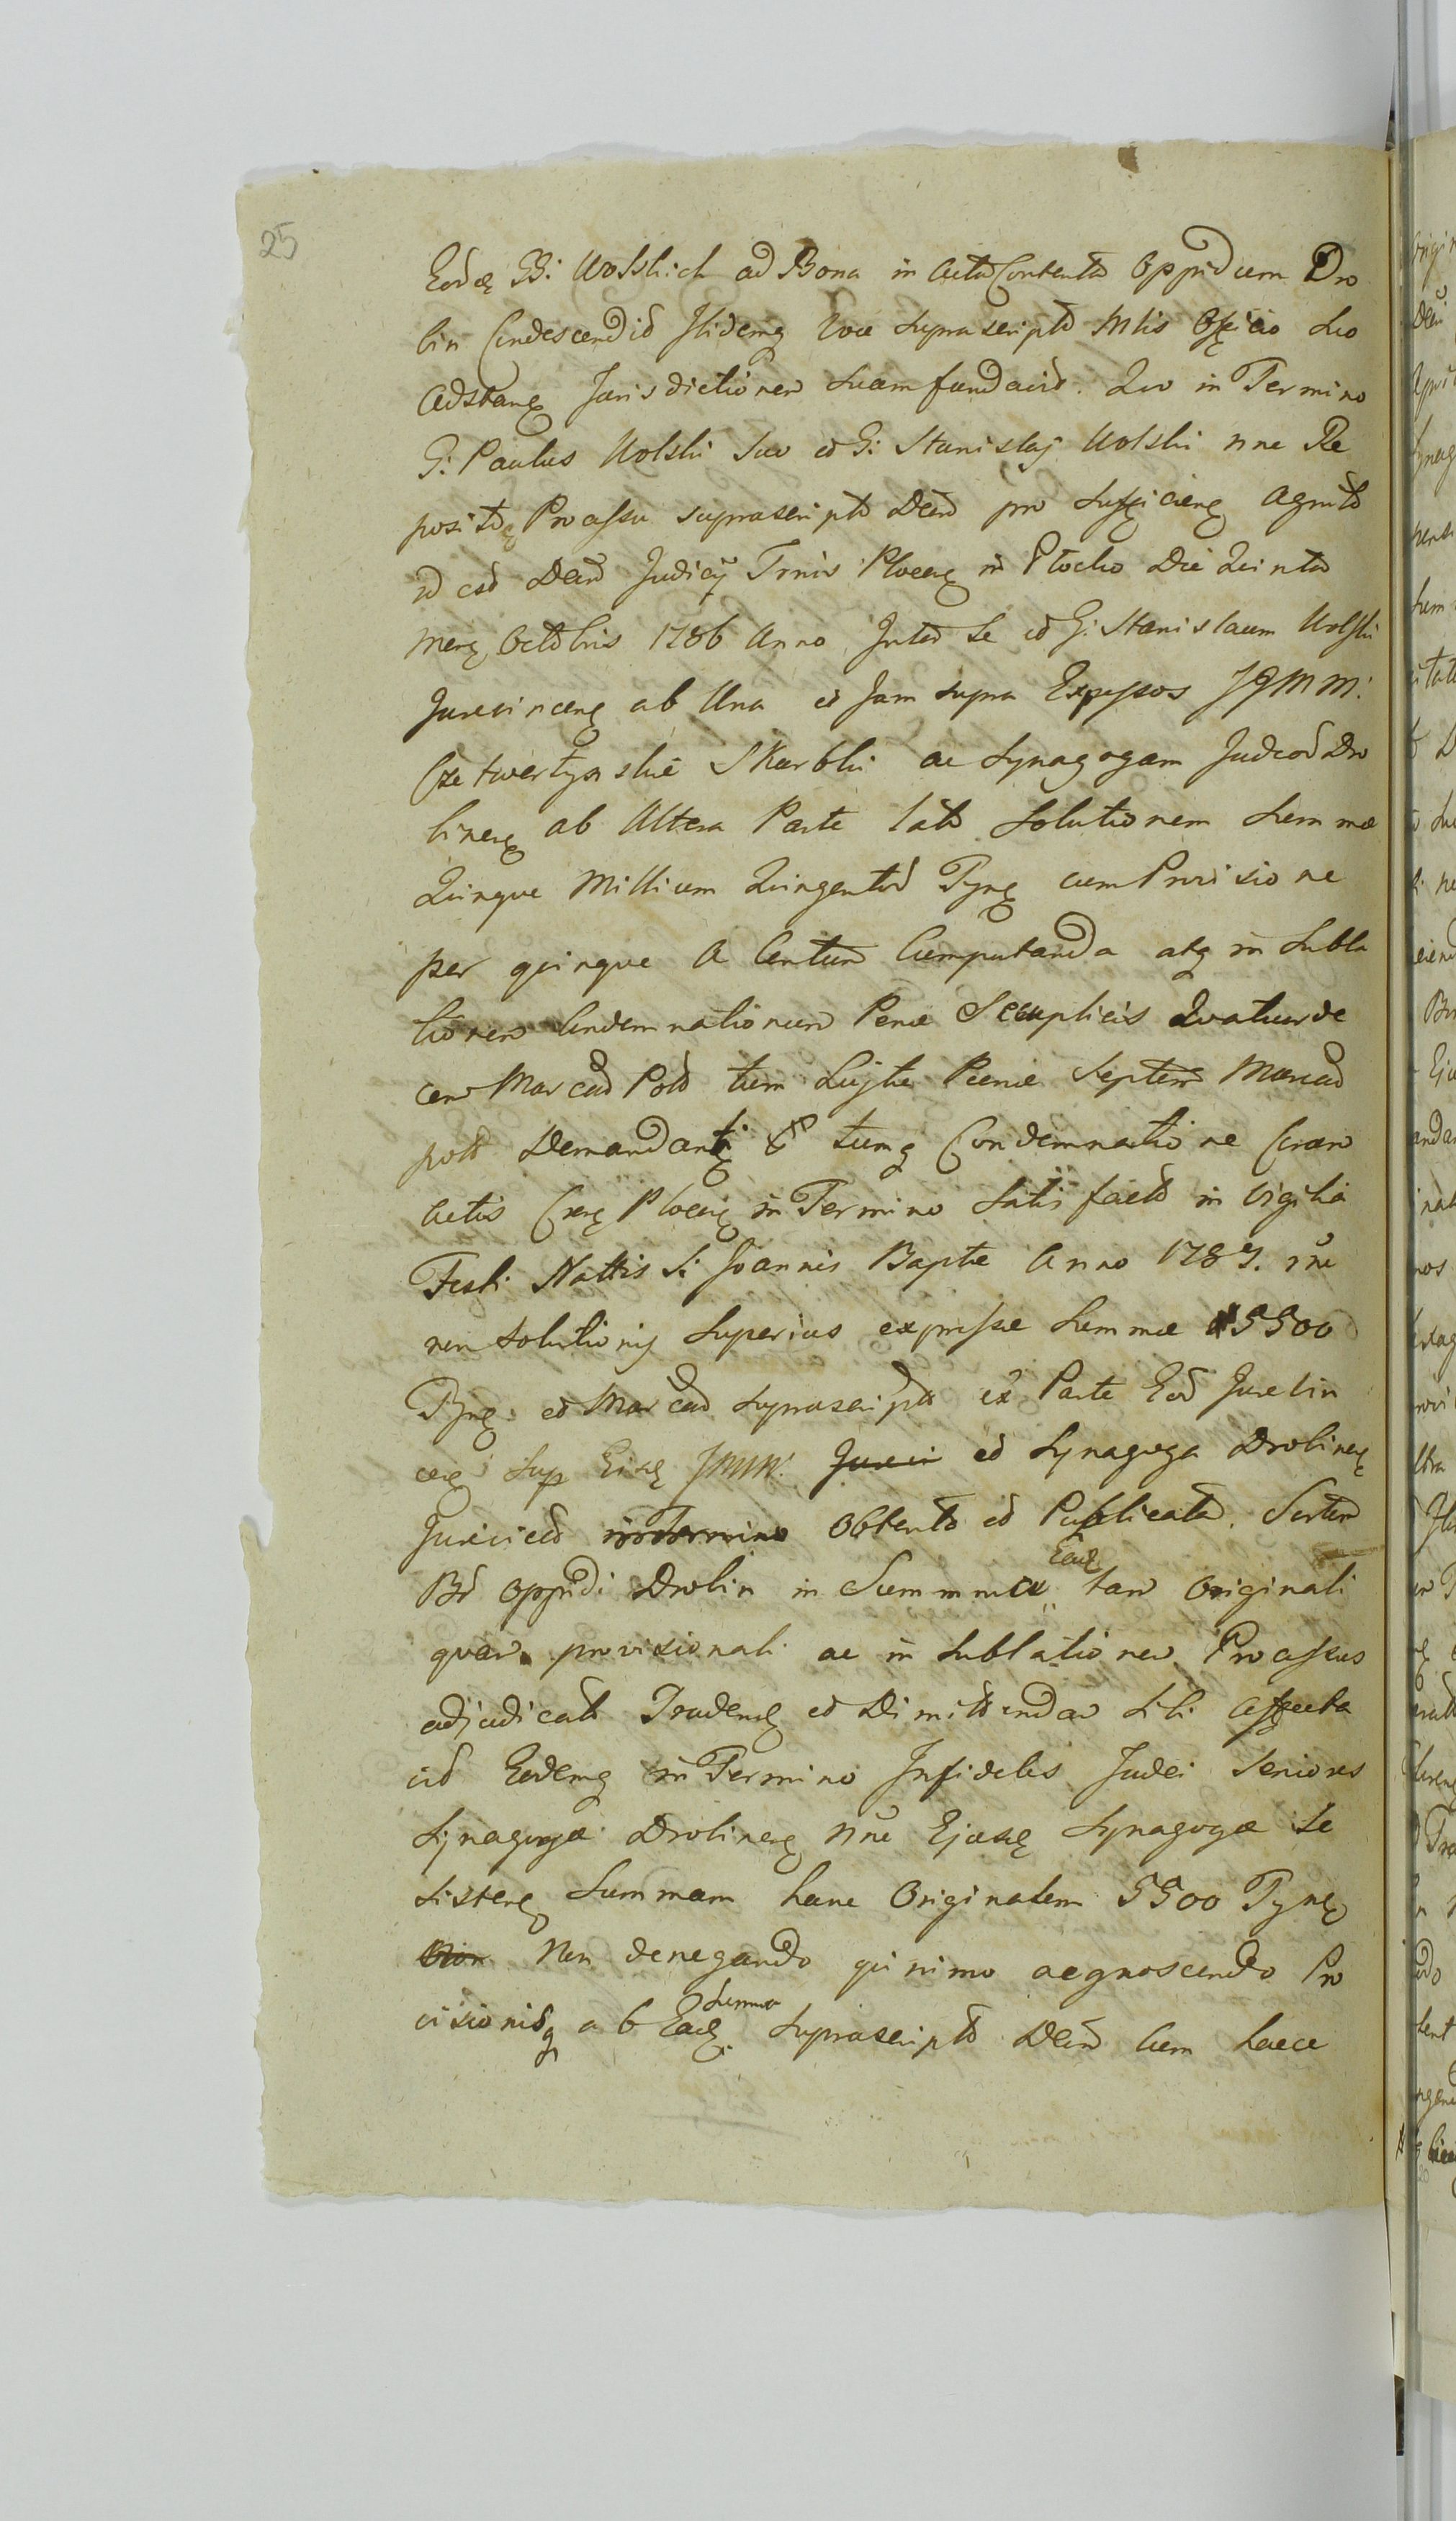 25
Eord GG: Wolskich ad Bona in Actu Contenta Oppidum Dro
bin Condescendit Ibidemq Voce suprascripti Mlis Officio suo
Adstanę Jurisdictionem suam fundavit. Quo in Termino
G: Paulus Wolski suo et G: Stanislaj Wolski nne Re
positoę Processu suprascripto Dein pro sufficienę Agnito
id est Deto Judicij Trnis Plocenę in Płocko Die Quinta
Menę Octobris 1786 Anno Inter se et G: Stanislaum Wolski
Jurevincenę ab Una et Jam supra Expressos JJMM:
Czetwertynskie Skarbki ac Synagogam Judeor Dro
binenę ab Altera Parte lato solutionem Summae
Quinque Millium Quingentor Tynę cum Provisione
per quinque a Centum Computanda atq in subla
tionem Condemnationum Penae Scuplicis Quatuorde
cem Marcar Pold tum Luytae Penae Septem Marcar
pold Demandantę & tumq Condemnatione Coram
Actis Crenę Plocenę in Termino Satisfacto in Vigilia
Festi Nattis S: Joannis Baptae Anno 1787. rne
non solutionis superius expressae Summae 5500
Tynę et Marcar suprascriptar ex Parte Eor Jurevin
cenę sup Eisdę JMM: Jurevi et Synagoga Drobinenę
Jurevictis in Termino Obtento et Publicata. Sortem
Br Oppidi Drobin in Summma Eadę tam Originali
quam provisionali ac in sublationem Processus
adjudicatam Tradendę et Dimittendam sibi affecta
vit Eodemq in Termino Infideles Judei Seniores
Synagogae Drobinenę nne Ejusdę Synagogae se
sistenę Summam hanc Originalem 5500 Tynę
Non Non denegando quinimo agnoscendo Pro
visionisq ab Eadę Summa suprascripto Deto Cum haece